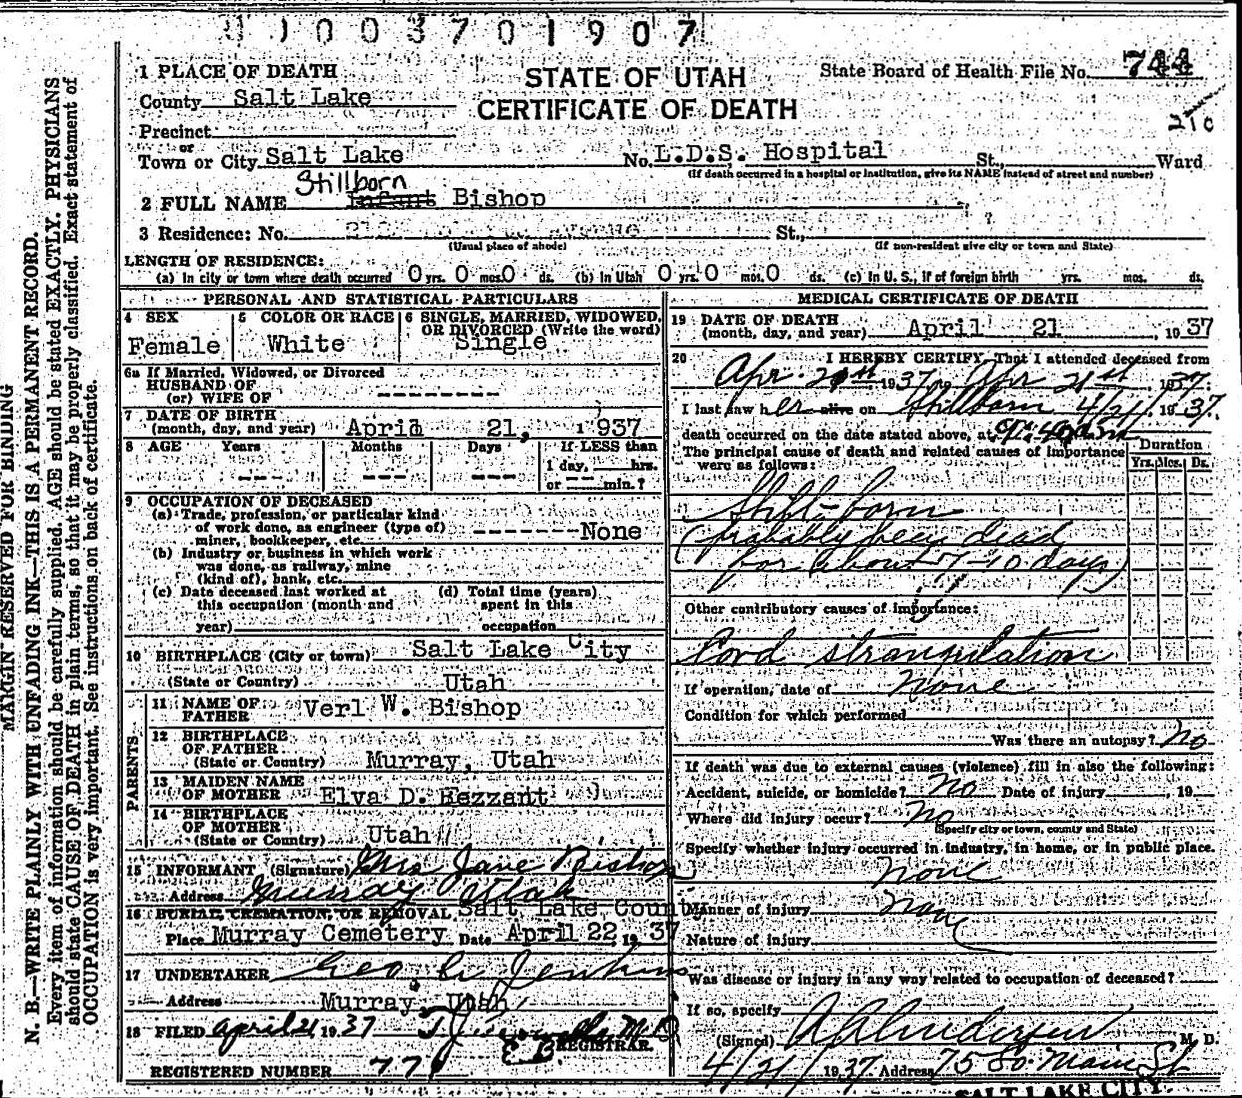 003701907
1 PLACE OF DEATH
STATE OF UTAH
CERTIFICATE OF DEATH
State Board of Health File No. 744
County Salt Lake
Precinct
or
Town or City Salt Lake No. L.D.S. Hospital St., Ward
(If death occurred in a hospital or institution, give its NAME instead of street and number)
Stillborn
2 FULL NAME Infant Bishop
3 Residence: No. St.,
(Usual place of abode) (If non-resident give city or town and State)
LENGTH OF RESIDENCE:
(a) In city or town where death occurred 0 yrs. 0 mos. 0 ds. (b) In Utah 0 yrs. 0 mos. 0 ds. (c) In U. S., if of foreign birth yrs. mos. ds.
PERSONAL AND STATISTICAL PARTICULARS
4 SEX
Female
5 COLOR OR RACE
White
6 SINGLE, MARRIED, WIDOWED,
OR DIVORCED (Write the word)
Single
6a If Married, Widowed, or Divorced
HUSBAND OF
(or) WIFE OF --------
7 DATE OF BIRTH
(month, day, and year) April 21, 1937
8 AGE Years Months Days If LESS than
1 day, hrs.
--- --- --- or min.?
9 OCCUPATION OF DECEASED
(a) Trade, profession, or particular kind
of work done, as engineer (type of)
miner, bookkeeper, etc. -------None
(b) Industry or business in which work
was done, as railway, mine
(kind of), bank, etc.
(c) Date deceased last worked at
this occupation (month and
year)
(d) Total time (years)
spent in this
occupation
10 BIRTHPLACE (City or town) Salt Lake City
(State or Country) Utah
PARENTS
11 NAME OF
FATHER Verl W. Bishop
12 BIRTHPLACE
OF FATHER
(State or Country) Murray, Utah
13 MAIDEN NAME
OF MOTHER Elva D. Bezzant
14 BIRTHPLACE
OF MOTHER
(State or Country) Utah
15 INFORMANT (Signature) Mrs Jane Bishop
Address Murray Utah
16 BURIAL, CREMATION, OR REMOVAL Salt Lake Count
Place Murray Cemetery Date April 22 19 37
17 UNDERTAKER Geo Jenkins
Address Murray, Utah
18 FILED April 21 19 37 M.D.
REGISTRAR.
REGISTERED NUMBER 771
MEDICAL CERTIFICATE OF DEATH
19 DATE OF DEATH
(month, day, and year) April 21, 19 37
20 I HEREBY CERTIFY, That I attended deceased from
Apr. 1937, to Apr 21st 1937.
I last saw her alive on Stillborn 4/21, 1937.
death occurred on the date stated above, at
The principal cause of death and related causes of importance
were as follows:
Duration
Yrs. Mos. Ds.
Still-born
(probably been dead
for about 7-10 days)
Other contributory causes of importance:
Cord strangulation
If operation, date of none
Condition for which performed
Was there an autopsy? No
If death was due to external causes (violence) fill in also the following:
Accident, suicide, or homicide? No Date of injury , 19
Where did injury occur? No
(Specify city or town, county and State)
Specify whether injury occurred in industry, in home, or in public place.
none
Manner of injury none
Nature of injury
Was disease or injury in any way related to occupation of deceased?
If so, specify
(Signed) M. D.
4/21/1937 Address 75 So Main St
SALT LAKE CITY.
MARGIN RESERVED FOR BINDING
N. B.—WRITE PLAINLY WITH UNFADING INK—THIS IS A PERMANENT RECORD.
Every item of information should be carefully supplied. AGE should be stated EXACTLY. PHYSICIANS
should state CAUSE OF DEATH in plain terms, so that it may be properly classified. Exact statement of
OCCUPATION is very important. See instructions on back of certificate.